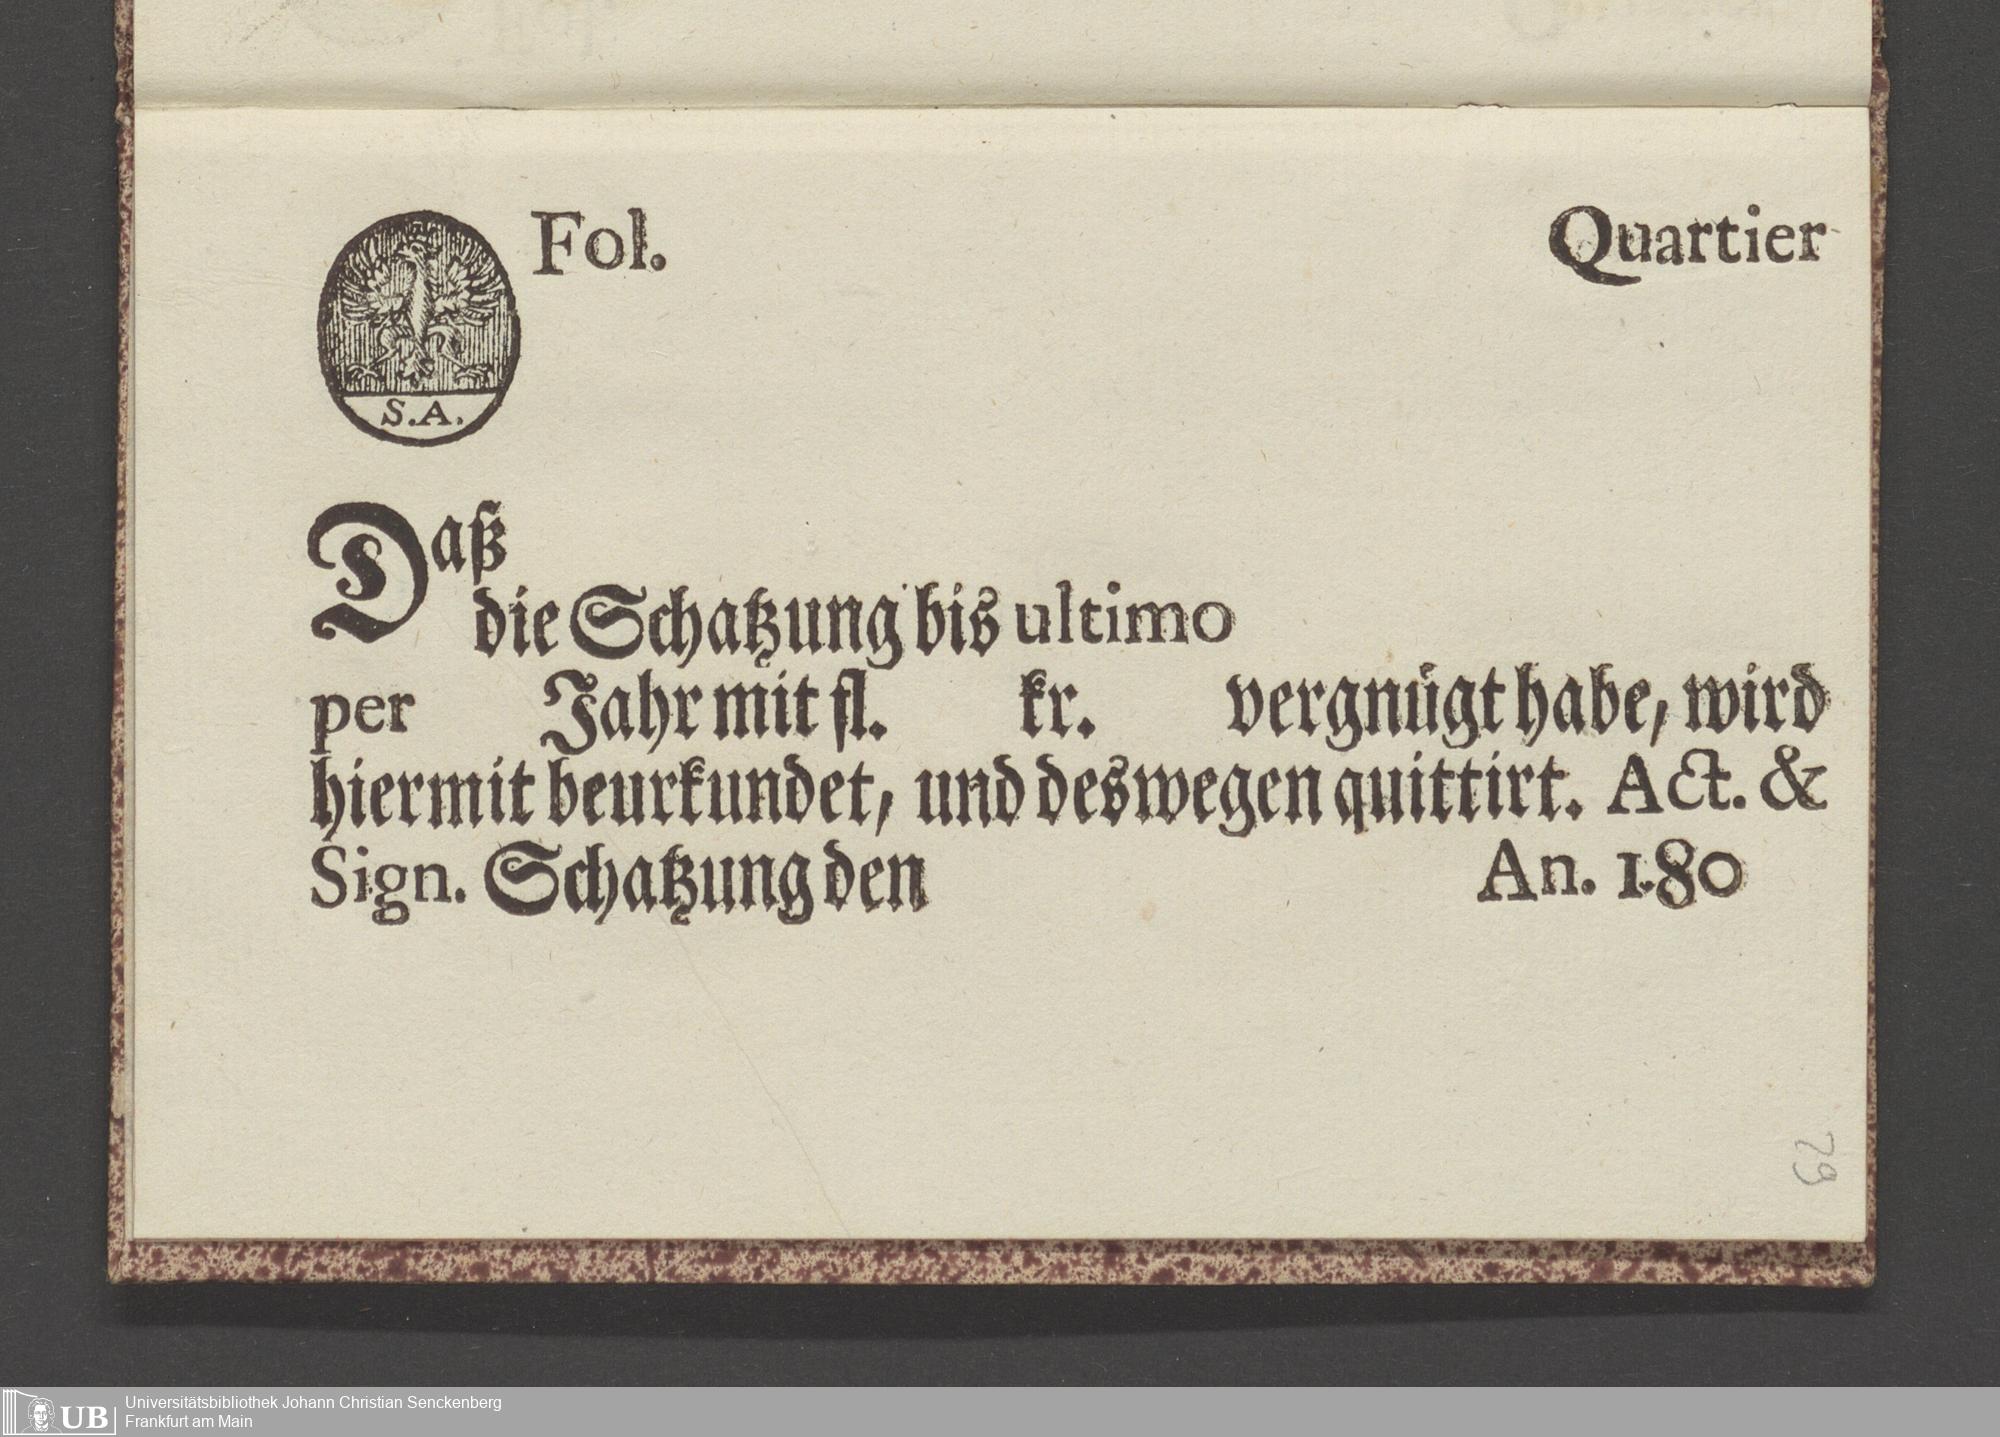 Fol. Quartier
S.A.
Daß
die Schatzung bis ultimo
per Jahr mit fl. kr. vergnügt habe, wird
hiermit beurkundet, und deswegen quittirt. Act. &
Sign. Schatzung den An. 1.80
79
Universitätsbibliothek Johann Christian Senckenberg
Frankfurt am Main
UB